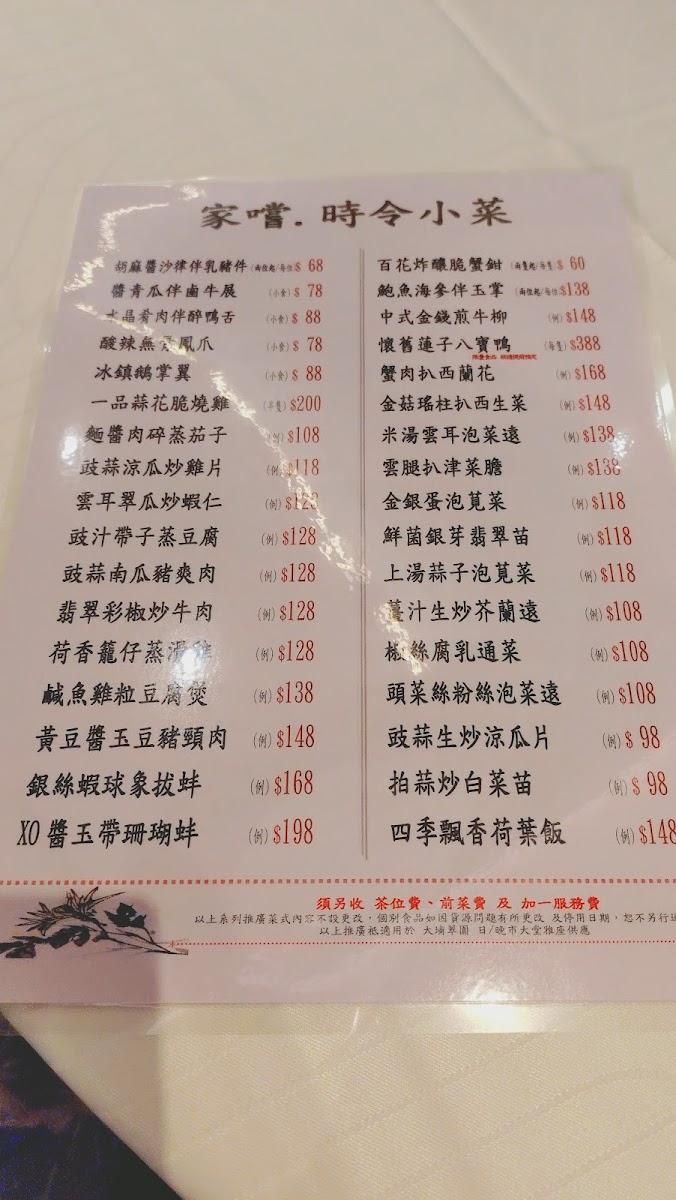 家嚐.時令小菜
胡麻醬沙律伴乳豬件 (兩位起/每位) $ 68
醬青瓜伴鹵牛展 (小食) $ 78
水晶肴肉伴醉鴨舌 (小食) $ 88
酸辣無骨鳳爪 (小食) $ 78
冰鎮鵝掌翼 (小食) $ 88
一品蒜花脆燒雞 (半隻) $200
麵醬肉碎蒸茄子 (例) $108
豉蒜涼瓜炒雞片 (例) $118
雲耳翠瓜炒蝦仁 (例)
豉汁帶子蒸豆腐 (例) $128
豉蒜南瓜豬爽肉 (例) $128
翡翠彩椒炒牛肉 (例) $128
荷香籠仔蒸滑雞 (例) $128
鹹魚雞粒豆腐煲 (例) $138
黃豆醬玉豆豬頸肉 (例) $148
銀絲蝦球象拔蚌 (例) $168
XO 醬玉帶珊瑚蚌 (例) $198
百花炸釀脆蟹鉗 (兩隻起/每隻) $ 60
鮑魚海參伴玉掌 (兩位起/每位) $138
中式金錢煎牛柳 (例) $148
懷舊蓮子八寶鴨 (每隻) $388
蟹肉扒西蘭花 (例) $168
金菇瑤柱扒西生菜 (例) $148
米湯雲耳泡菜遠 (例) $138
雲腿扒津菜膽 (例) $138
金銀蛋泡莧菜 (例) $118
鮮菌銀芽翡翠苗 (例) $118
上湯蒜子泡莧菜 (例) $118
薑汁生炒芥蘭遠 (例) $108
椒絲腐乳通菜 (例) $108
頭菜絲粉絲泡菜遠 (例) $108
豉蒜生炒涼瓜片 (例) $ 98
拍蒜炒白菜苗 (例) $ 98
四季飄香荷葉飯 (例) $148
須另收 茶位費、前菜費 及 加一服務費
以上系列推廣菜式內容不設更改，個別食品如因貨源問題有所更改 及停用日期，恕不另行
以上推廣祗適用於 大埔翠園 日/晚市大堂雅座供應